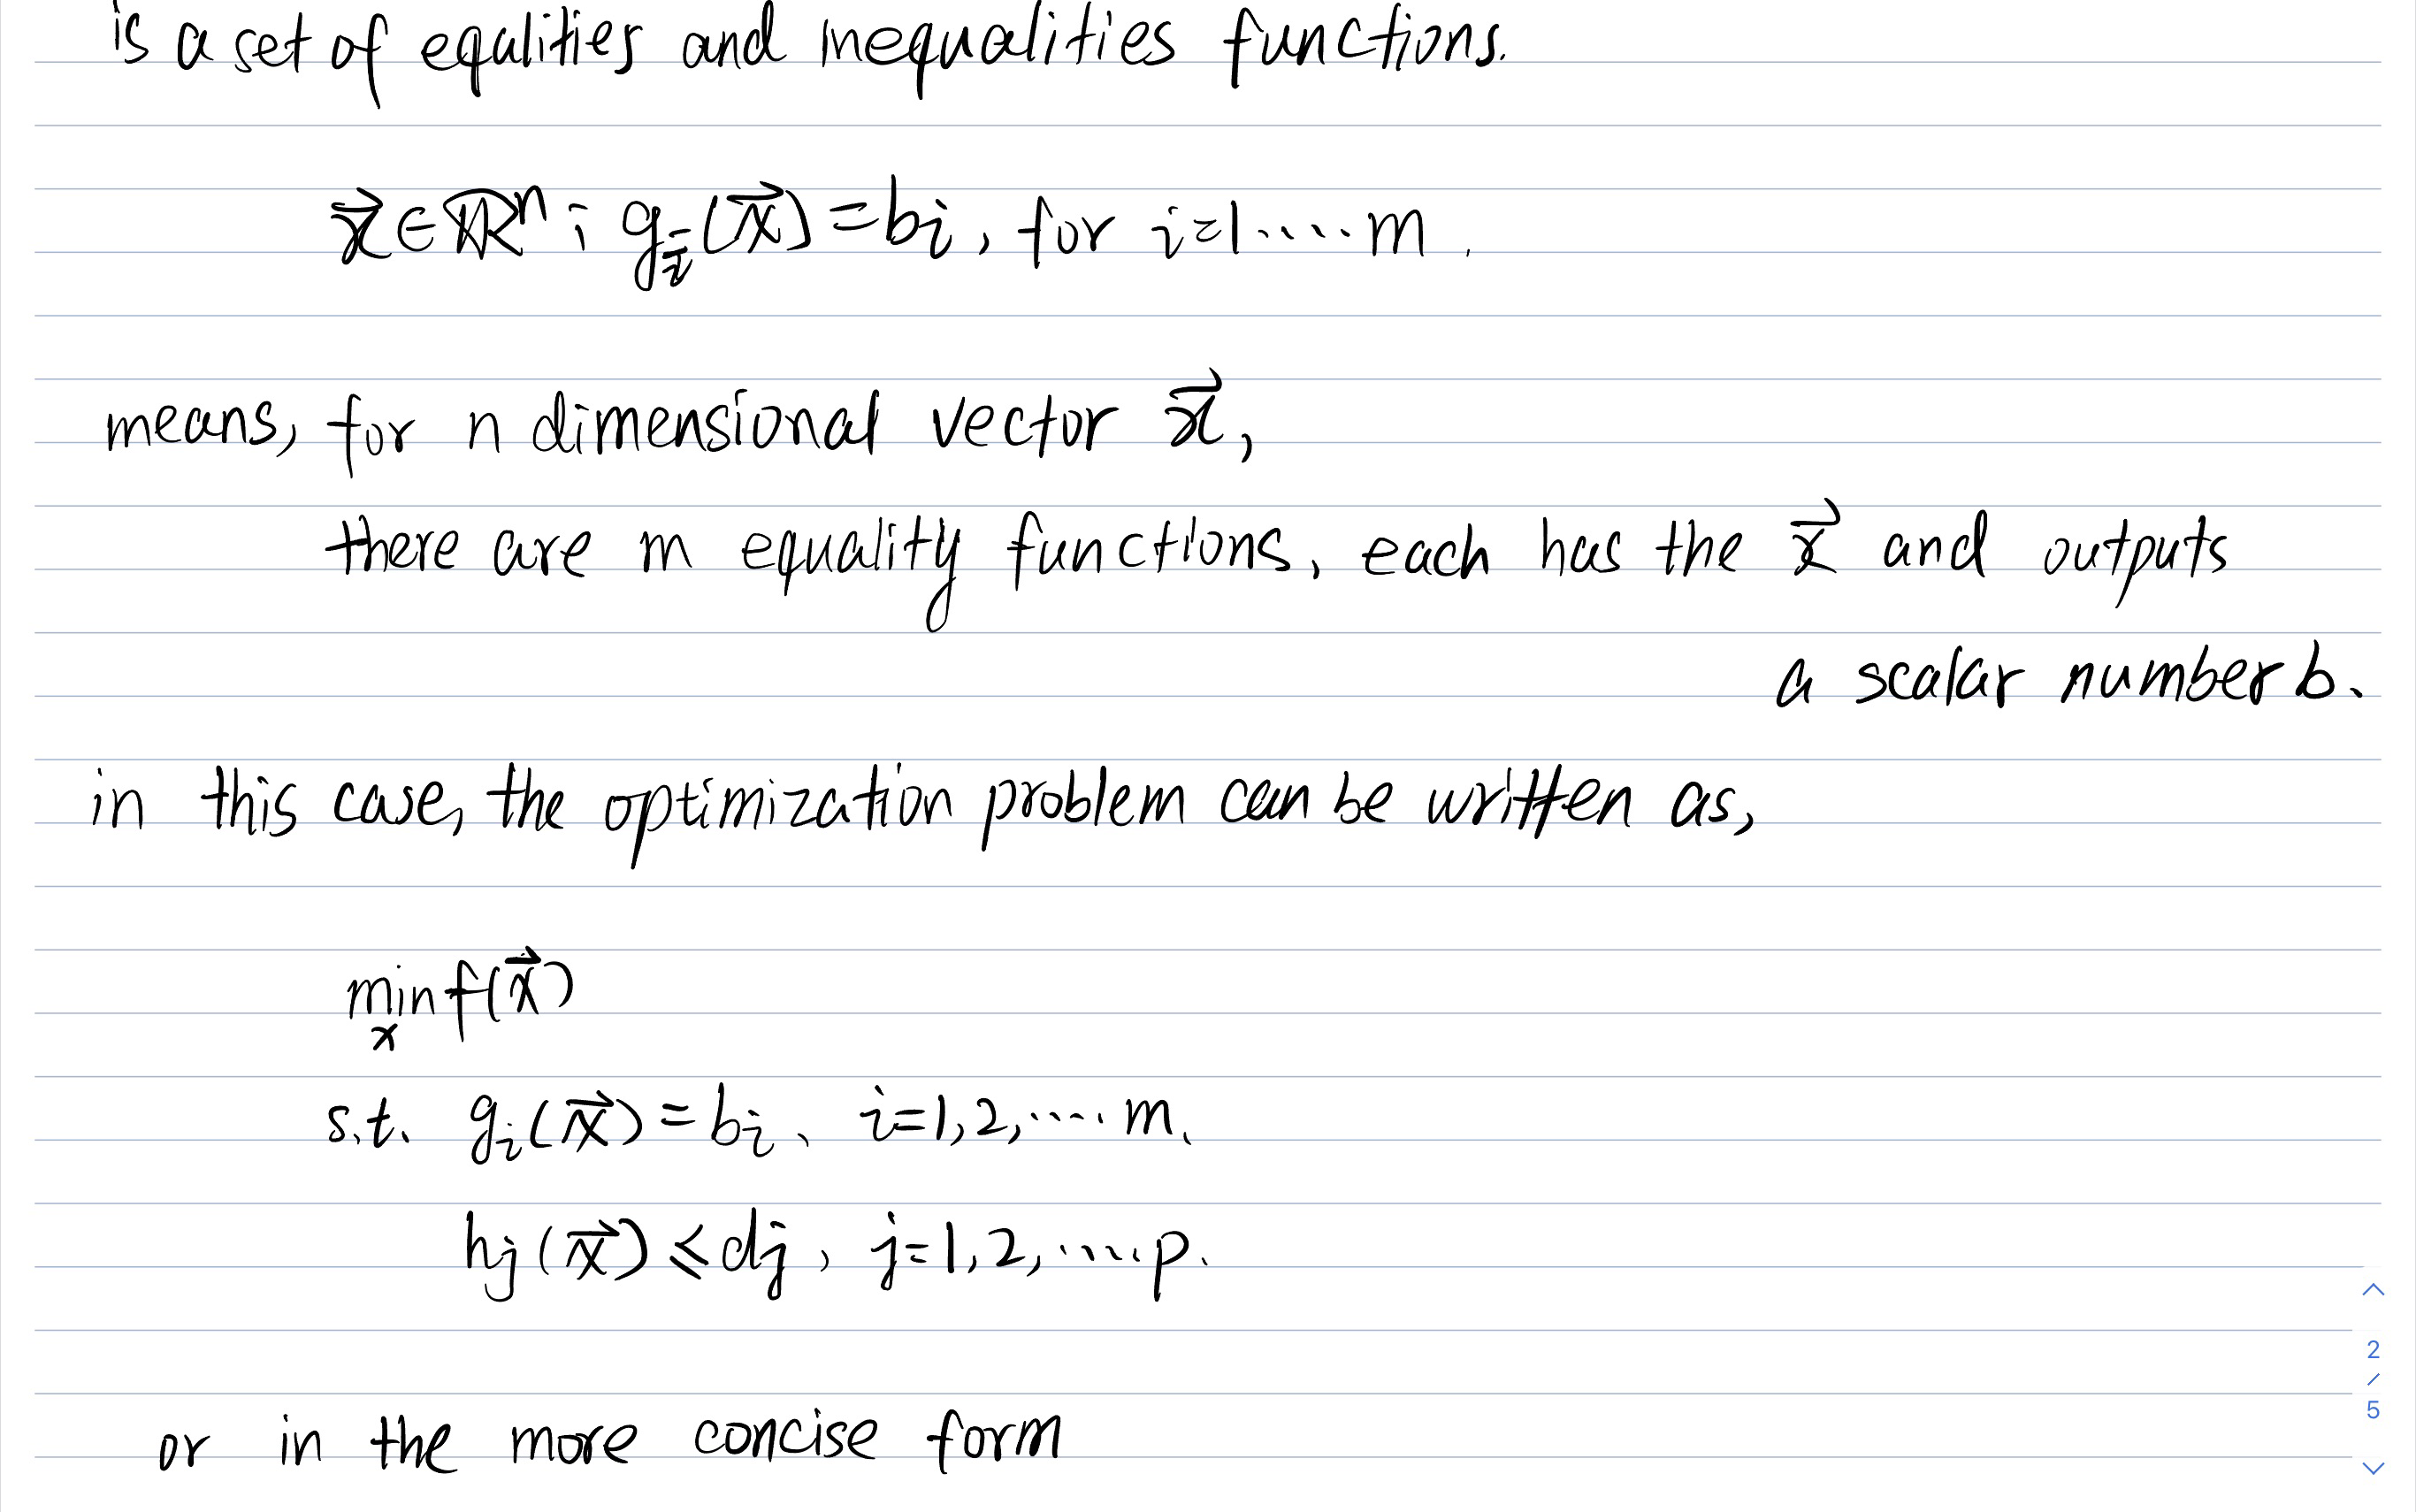 is a set of equalities and inequalities functions.
x⃗ ∈ ℝⁿ : gᵢ(x⃗) = bᵢ, for i=1.....m.
means, for n dimensional vector x⃗,
there are m equality functions, each has the x⃗ and outputs
a scalar number b.
in this case, the optimization problem can be written as,
min f(x⃗)
x
s.t. gᵢ(x⃗) = bᵢ, i=1,2,.... m.
hⱼ(x⃗) ≤ dⱼ, j=1,2, .... p.
2
/
5
or in the more concise form